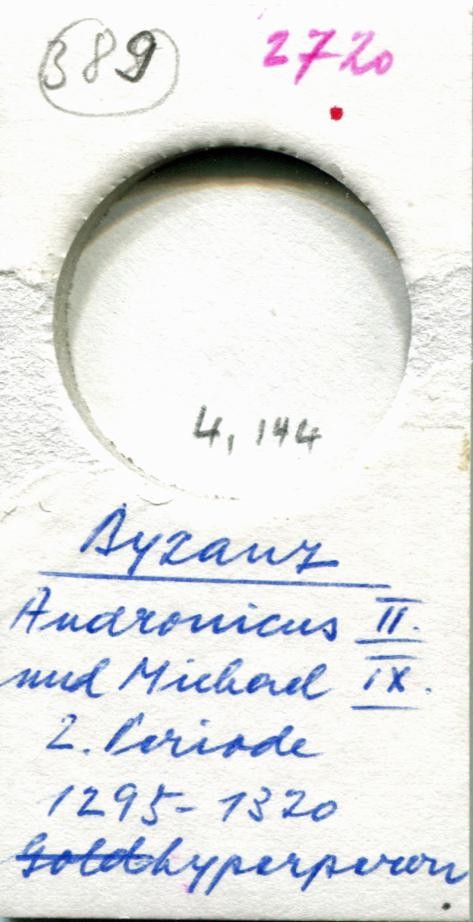 389 2720
4,144
Byzanz
Andronicus II.
und Michael IX.
2. Periode
1295-1320
Goldhyperperon